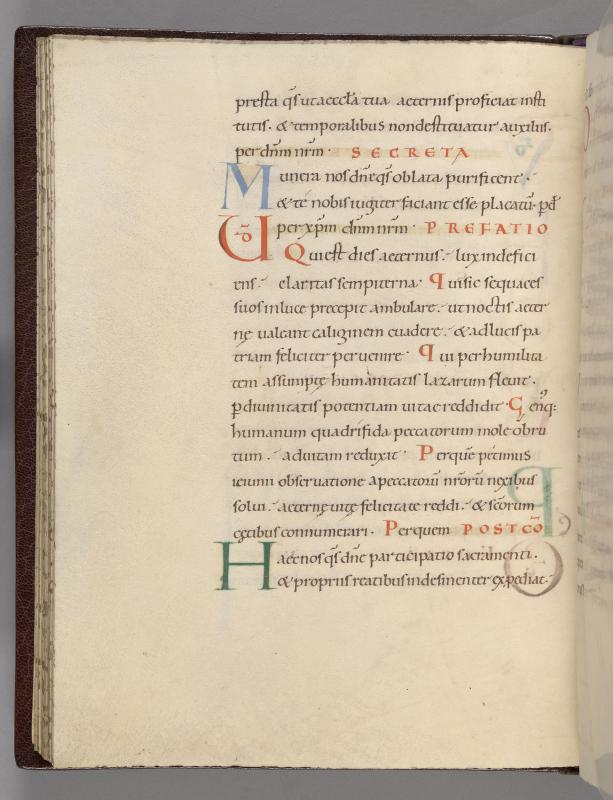 presta qs ut aeccła tua aeternis proficiat insti
tutis. & temporalibus non destituatur auxiliis.
per dnm nrm. SECRETA
Munera nos dne qs oblata purificent.
& te nobis iugiter faciant esse placatū. p̄ d
UD per xpm dnm nrm. PREFATIO
Qui est dies aeternus. lux indefici
ens. claritas sempiterna. Qui sic sequaces
suos in luce precepit ambulare. ut noctis aeter
nę ualeant caliginem euadere. & ad lucis pa
triam feliciter peruenire. Qui per humilita
tem assumptę humanitatis lazarum fleuit.
p̄ diuinitatis potentiam uitae reddidit. Genq:
humanum quadrifida peccatorum mole obru
tum. ad uitam reduxit. Per quē petimus
ieiunii obseruatione a peccatorū nrōrū nexibus
solui. aeternę uitę felicitate reddi. & scōrum
cętibus connumerari. Per quem POST CŌ
Haec nos qs dne participatio sacramenti.
& propriis reatibus indesinenter expediat.